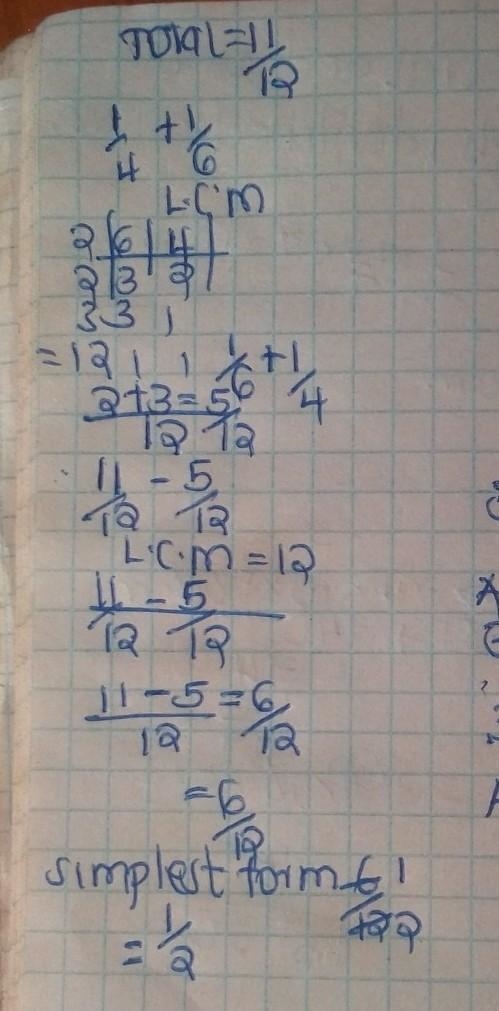 TOTAL = 11/12
1/4 + 1/6
L.C.M
2 | 6 | 4 |
2 | 3 | 2 |
3 3 1
= 12 1 1 1/6 + 1/4
2 + 3 = 5/12
12
11/12 - 5/12
L.C.M = 12
11/12 - 5/12
11 - 5 = 6/12
12
= 6/12
simplest form 6/12 1/2
= 1/2